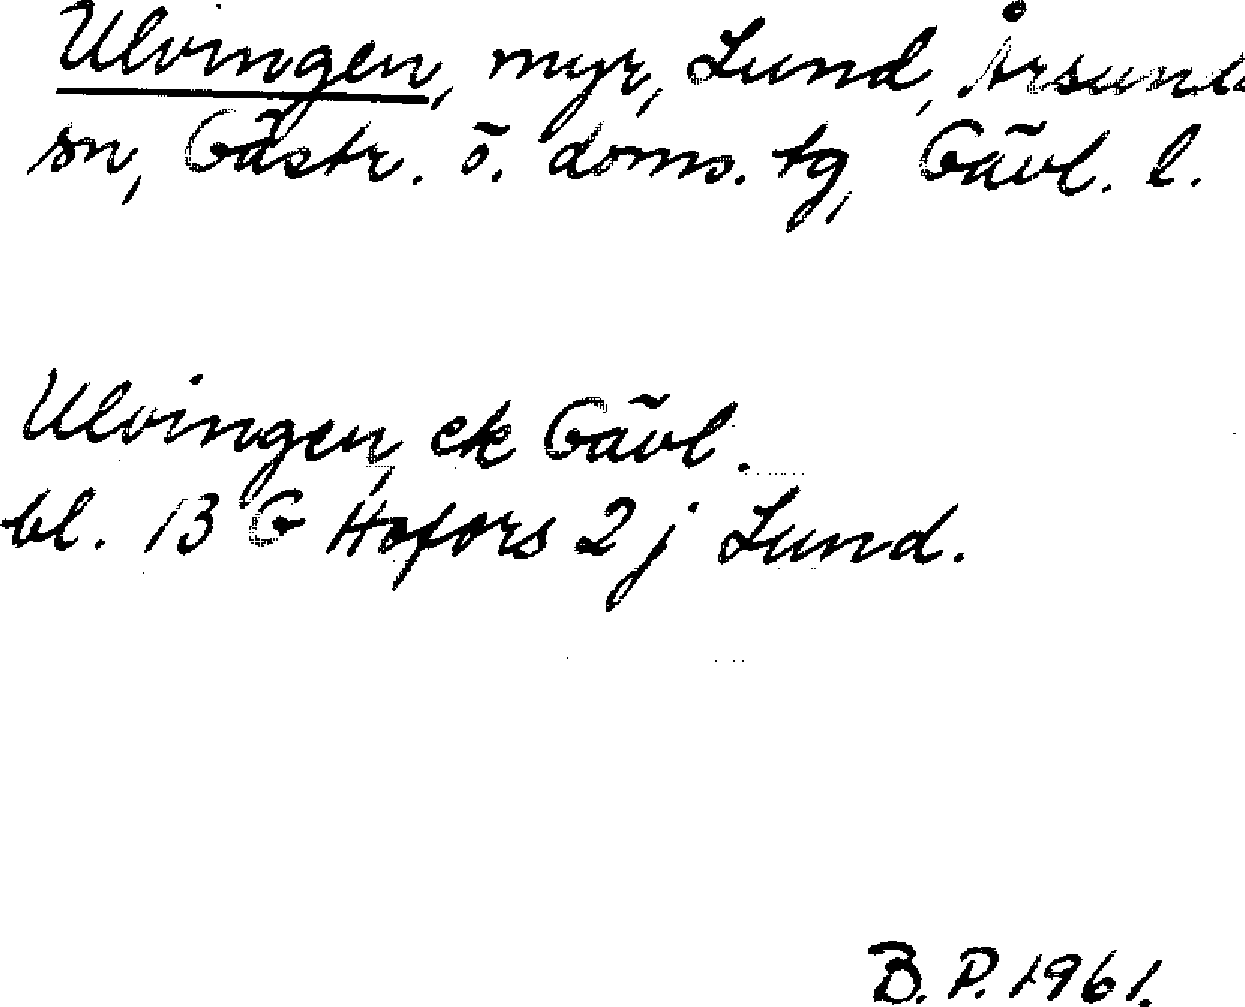 Ulvingen, myr, Lund, Årsunda
sn, Gästr. ö. doms. tg, Gävl. l.
Ulvingen, ek Gävl.
bl. 13 G Hofors 2 j Lund.
B. P. 1961.